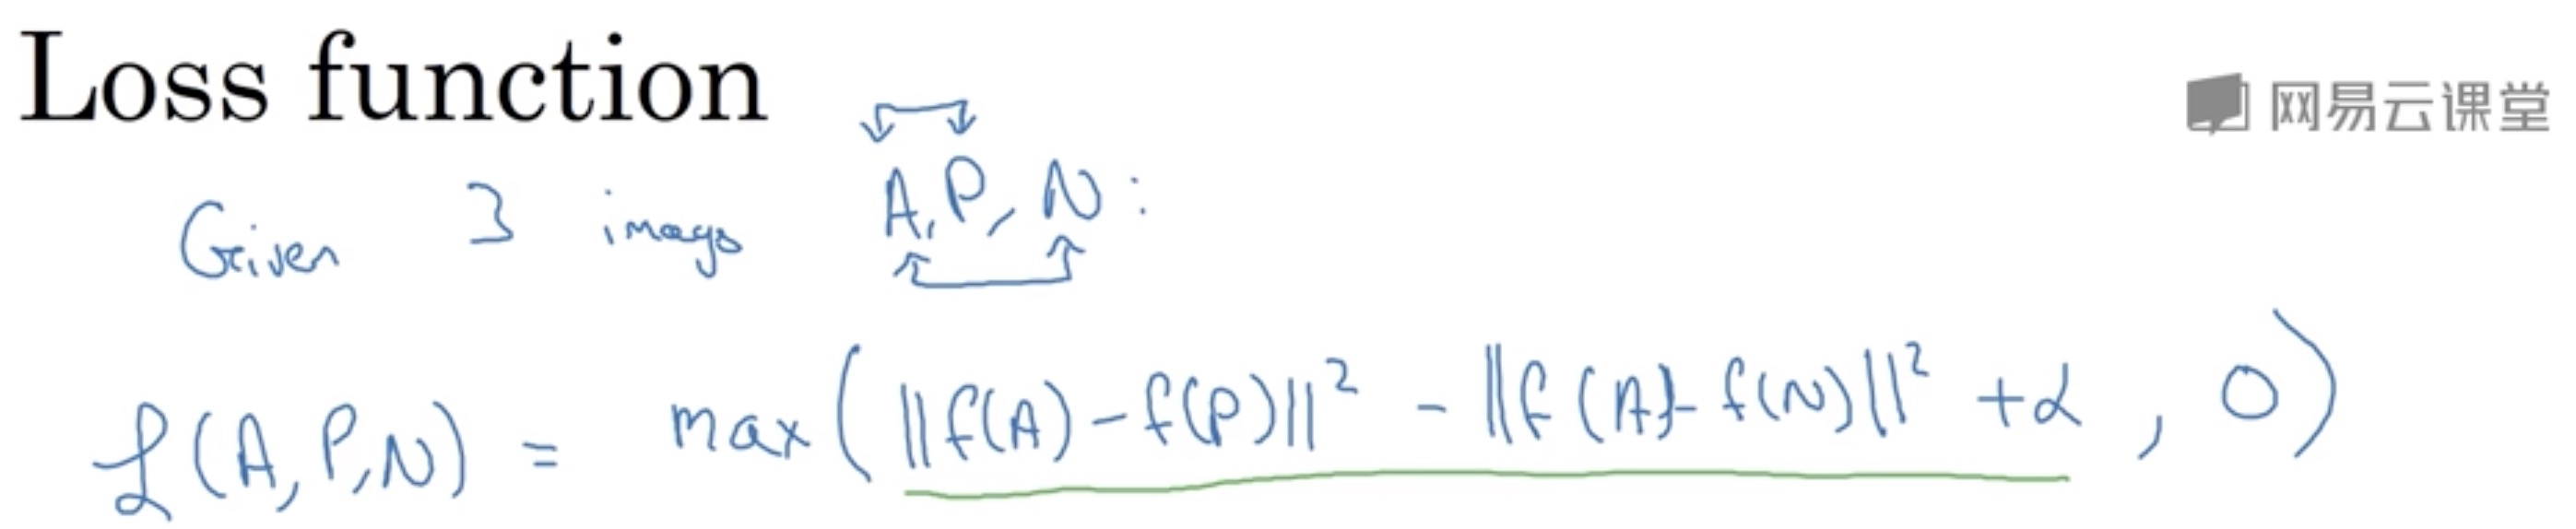 Loss function
网易云课堂
Given 3 images A, P, N:
L(A, P, N) = max(||f(A) - f(P)||² - ||f(A) - f(N)||² + α, 0)